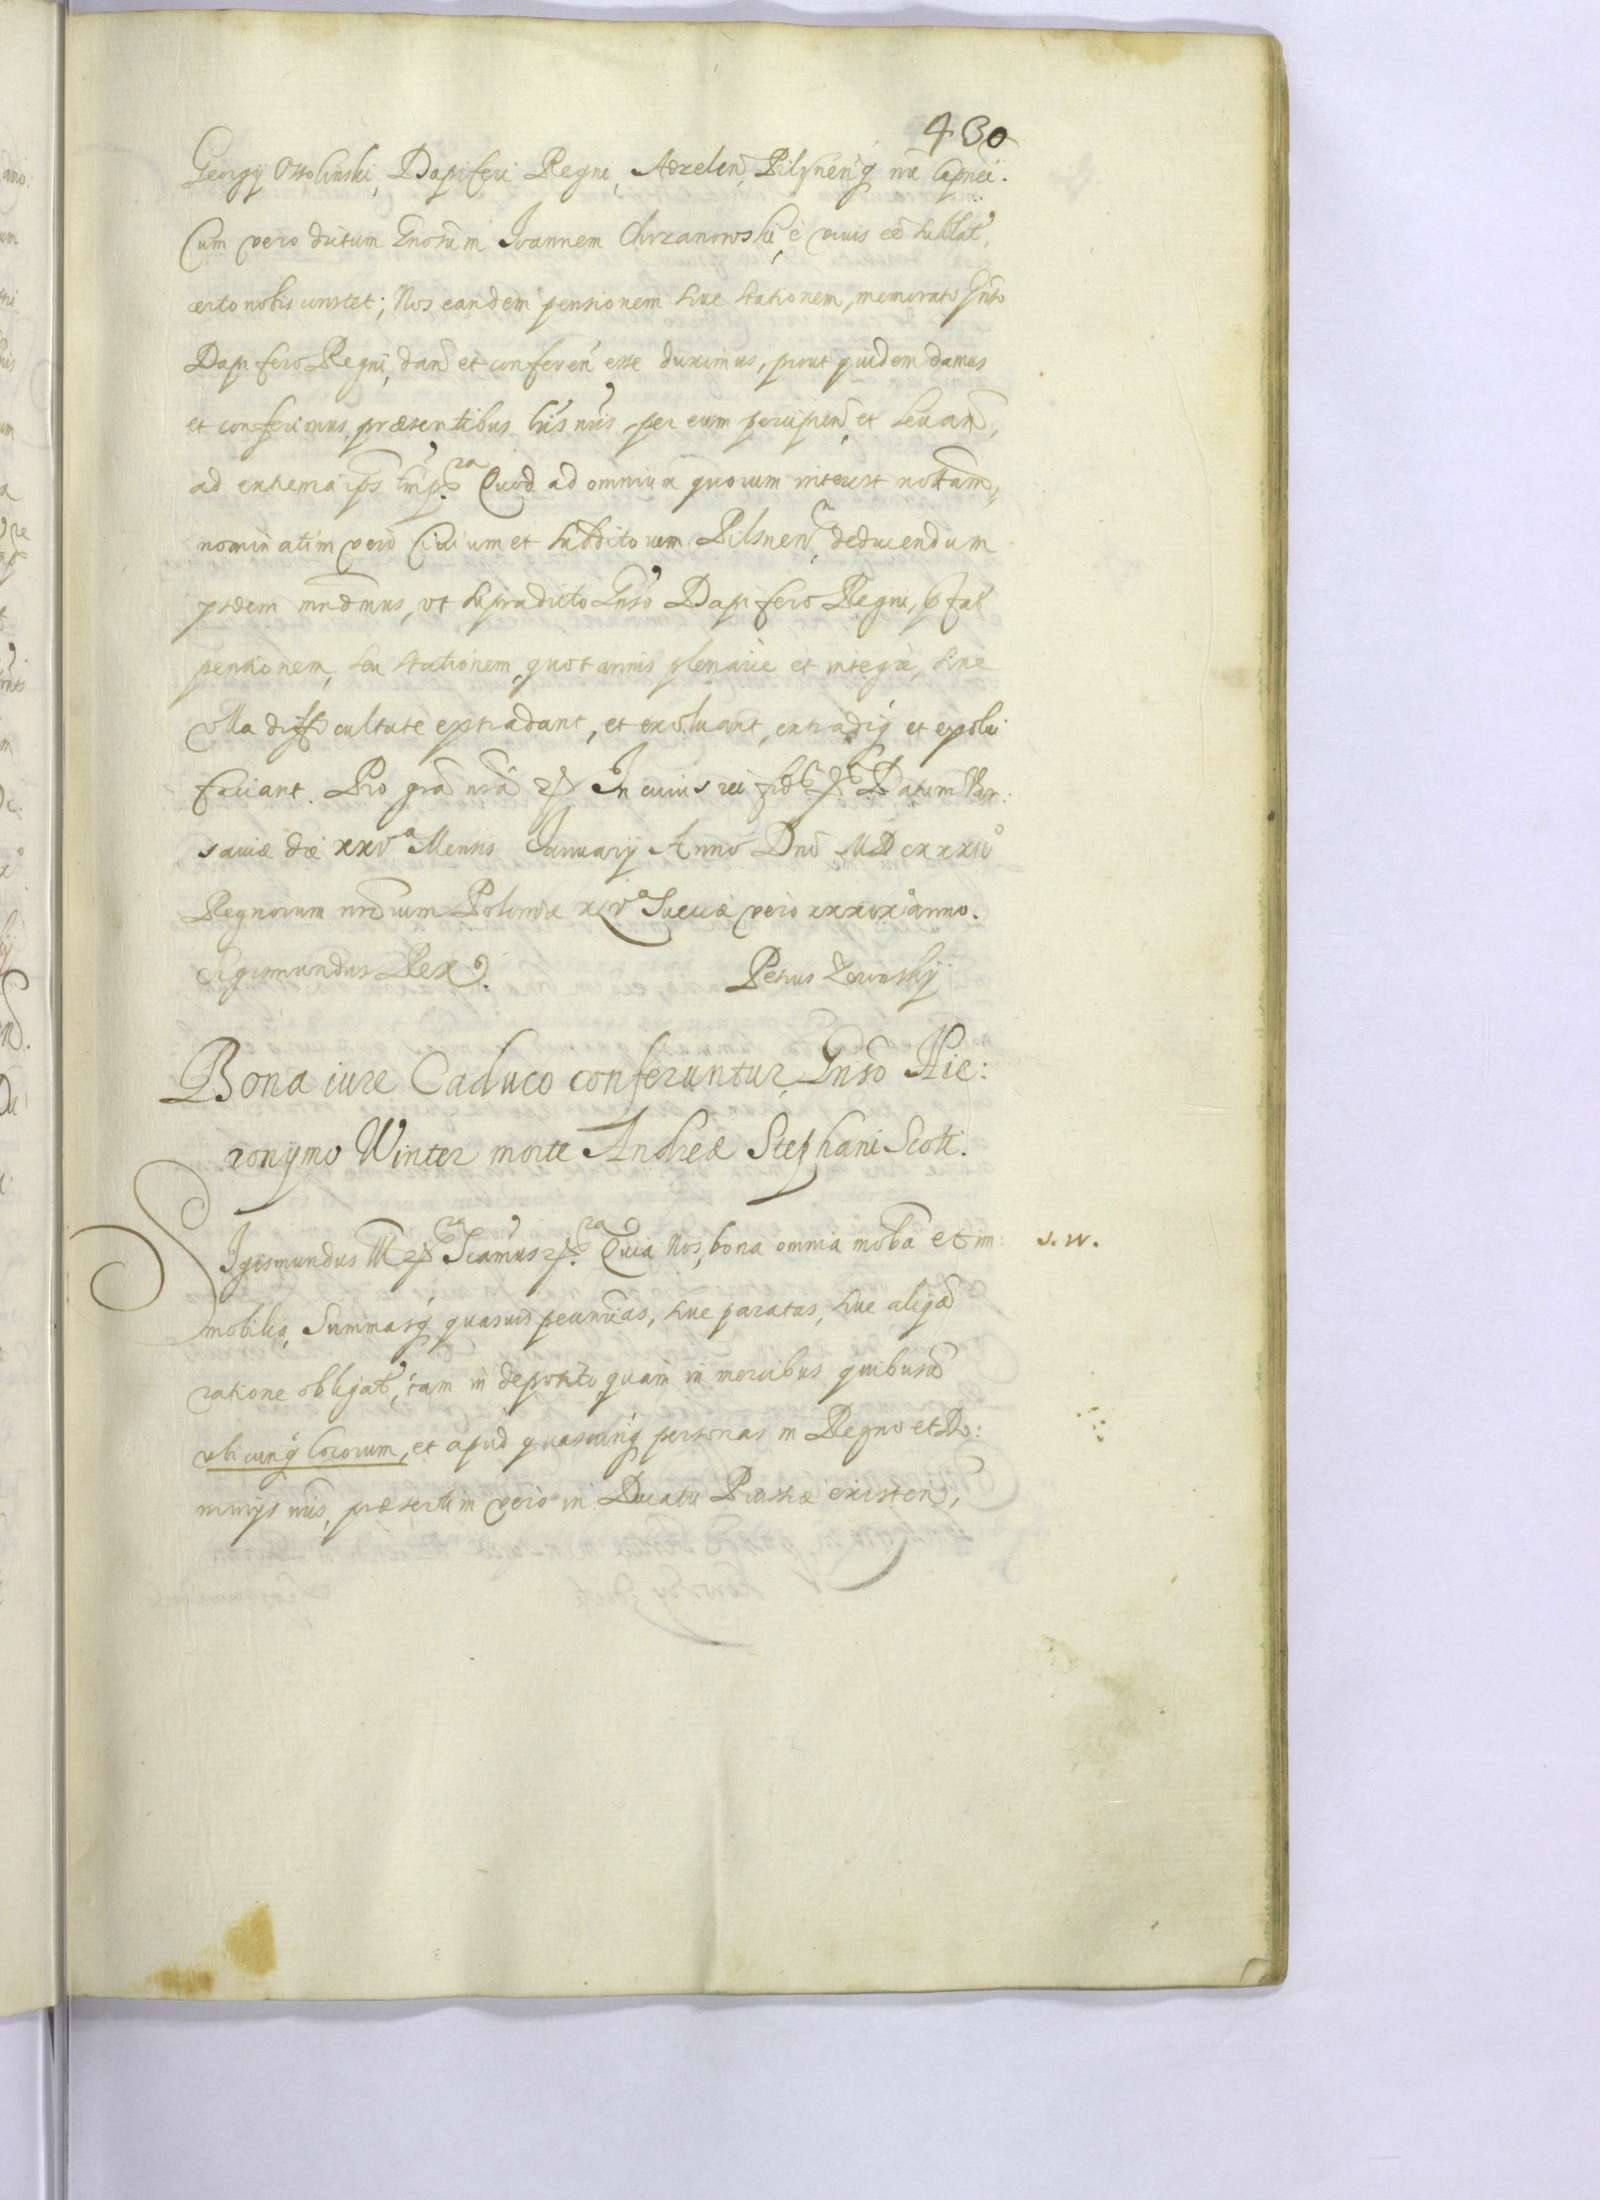 430
Georgij Ossolinski, Dapiferi Regni, Adzelen, Pilsnenq nri Capnei.
Cum vero dictum Gnosum Joannem Chrzanowski, è viuis eê sublat,
certo nobis constet; Nos eandem pensionem siue stationem, memorato Gnso
Dapifero Regni, dan et conferen esse duximus, prout quidem damus
et conferimus præsentibus lris nris, per eum percipien et leuan,
ad extrema ips tmpra Quod ad omnium quorum interest notam,
nominatim vero Ciuium et subditorum Pilsnen, deducendum
ysdem mndmus, vt supradicto Gnso Dapifero Regni, pfat
pensionem, seu stationem, quotannis plenarie et integre, sine
vlla difficultate extradant, et exoluant, extradiq et exolui
faciant. Pro gra nra In cuius rei fid Datum Var:
sauiæ die xxv Mensis January Anno Dni
Regnorum nrorum Poloniæ Sueciæ vero anno.
Sigismundus Rex. Petrus
Bona iure Caduco conferuntur, Gnso Hie:
ronymo Winter morte Andreæ Stephani Scoti.
Sigismundus III Quia Nos, bona omnia moba et im: S. W.
mobilia, Summasq quasuis pecunias, siue paratas, siue aliqa
ratione obligat, tam in deposito quam in mercibus quibusus
vbicunq locorum, et apud quascunq personas in Regno et Do:
minijs nris, præsertim vero in Ducatu Prussiæ existen,